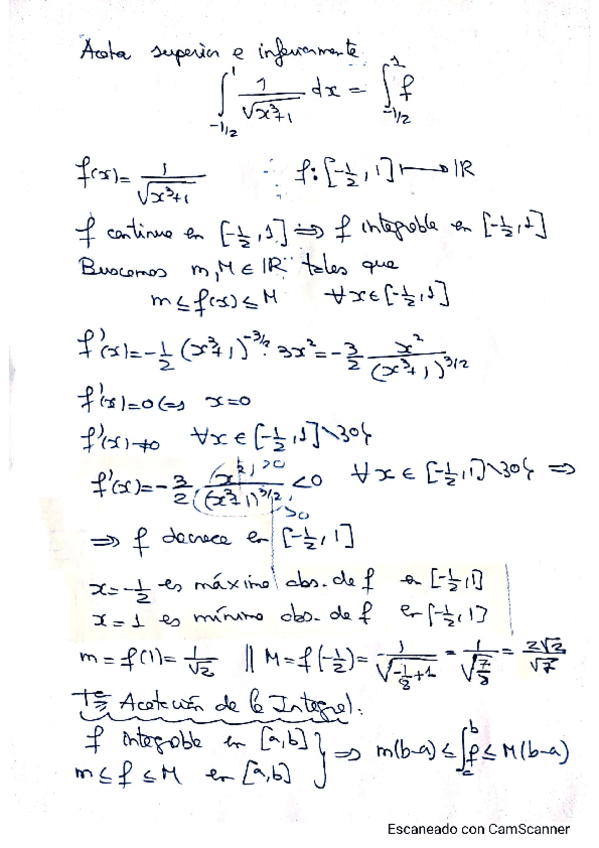 Acota superior e inferiormente
∫_{-1/2}^{1} 1/√(x³+1) dx = ∫_{-1/2}^{1} f
f(x) = 1/√(x³+1) ∴ f: [-1/2, 1] ↦ IR
f continua en [-1/2, 1] ⇒ f integrable en [-1/2, 1]
Buscamos m, M ∈ IR tales que
m ≤ f(x) ≤ M ∀x ∈ [-1/2, 1]
f'(x) = -1/2 (x³+1)^{-3/2} · 3x² = -3/2 x²/(x³+1)^{3/2}
f'(x) = 0 ⇔ x = 0
f'(x) ≠ 0 ∀x ∈ [-1/2, 1] \ {0}
f'(x) = -3/2 x²/(x³+1)^{3/2} < 0 ∀x ∈ [-1/2, 1] \ {0} ⇒
>0
>0
⇒ f decrece en [-1/2, 1]
x = -1/2 es máximo abs. de f en [-1/2, 1]
x = 1 es mínimo abs. de f en [-1/2, 1]
m = f(1) = 1/√2 || M = f(-1/2) = 1/√(-1/8+1) = 1/√(7/8) = 2√2/√7
Tª Acotación de la Integral:
f integrable en [a,b]
m ≤ f ≤ M en [a,b] } ⇒ m(b-a) ≤ ∫_{a}^{b} f ≤ M(b-a)
Escaneado con CamScanner